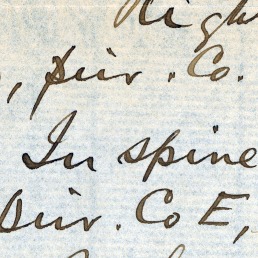 Righ
, Div. Co.
In spine
Div. Co E,